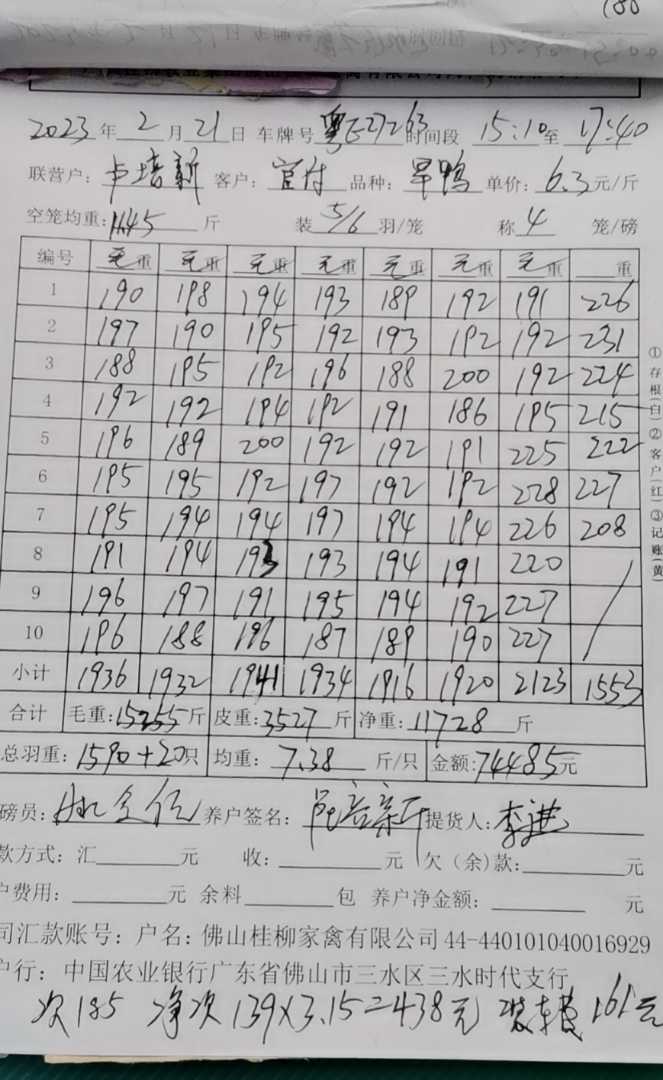 180
2023年2月21日 车牌号 粤E27263 时间段 15:10至17:40
联营户: 卢培新 客户: 宜付 品种: 旱鸭 单价: 6.3元/斤
空笼均重: 11.45 斤 装 5/6 羽/笼 称 4 笼/磅
编号 毛重 毛重 毛重 毛重 毛重 毛重 毛重 重
1 190 198 194 193 189 192 191 226
2 197 190 195 192 193 192 192 231
3 188 195 192 196 188 200 192 224
4 192 192 194 192 191 186 195 215
5 196 189 200 192 192 191 225 222
6 195 195 192 197 192 192 228 227
7 195 194 194 197 194 194 226 208
8 191 194 193 193 194 191 220
9 196 197 191 195 194 192 227
10 196 188 196 187 189 190 227
小计 1936 1932 1941 1934 1916 1920 2123 1553
合计 毛重: 15255斤 皮重: 3527斤 净重: 11728斤
总羽重: 1590+20只 均重: 7.38 斤/只 金额: 74485元
磅员: 养户签名: 卢培新 提货人: 李进
款方式: 汇 元 收: 元 欠(余)款: 元
户费用: 元 余料 包 养户净金额: 元
司汇款账号: 户名: 佛山桂柳家禽有限公司 44-440101040016929
户行: 中国农业银行广东省佛山市三水区三水时代支行
次185 净次139×3.15=438元 装车费161元
①存根(白)②客户(红)③记账(黄)